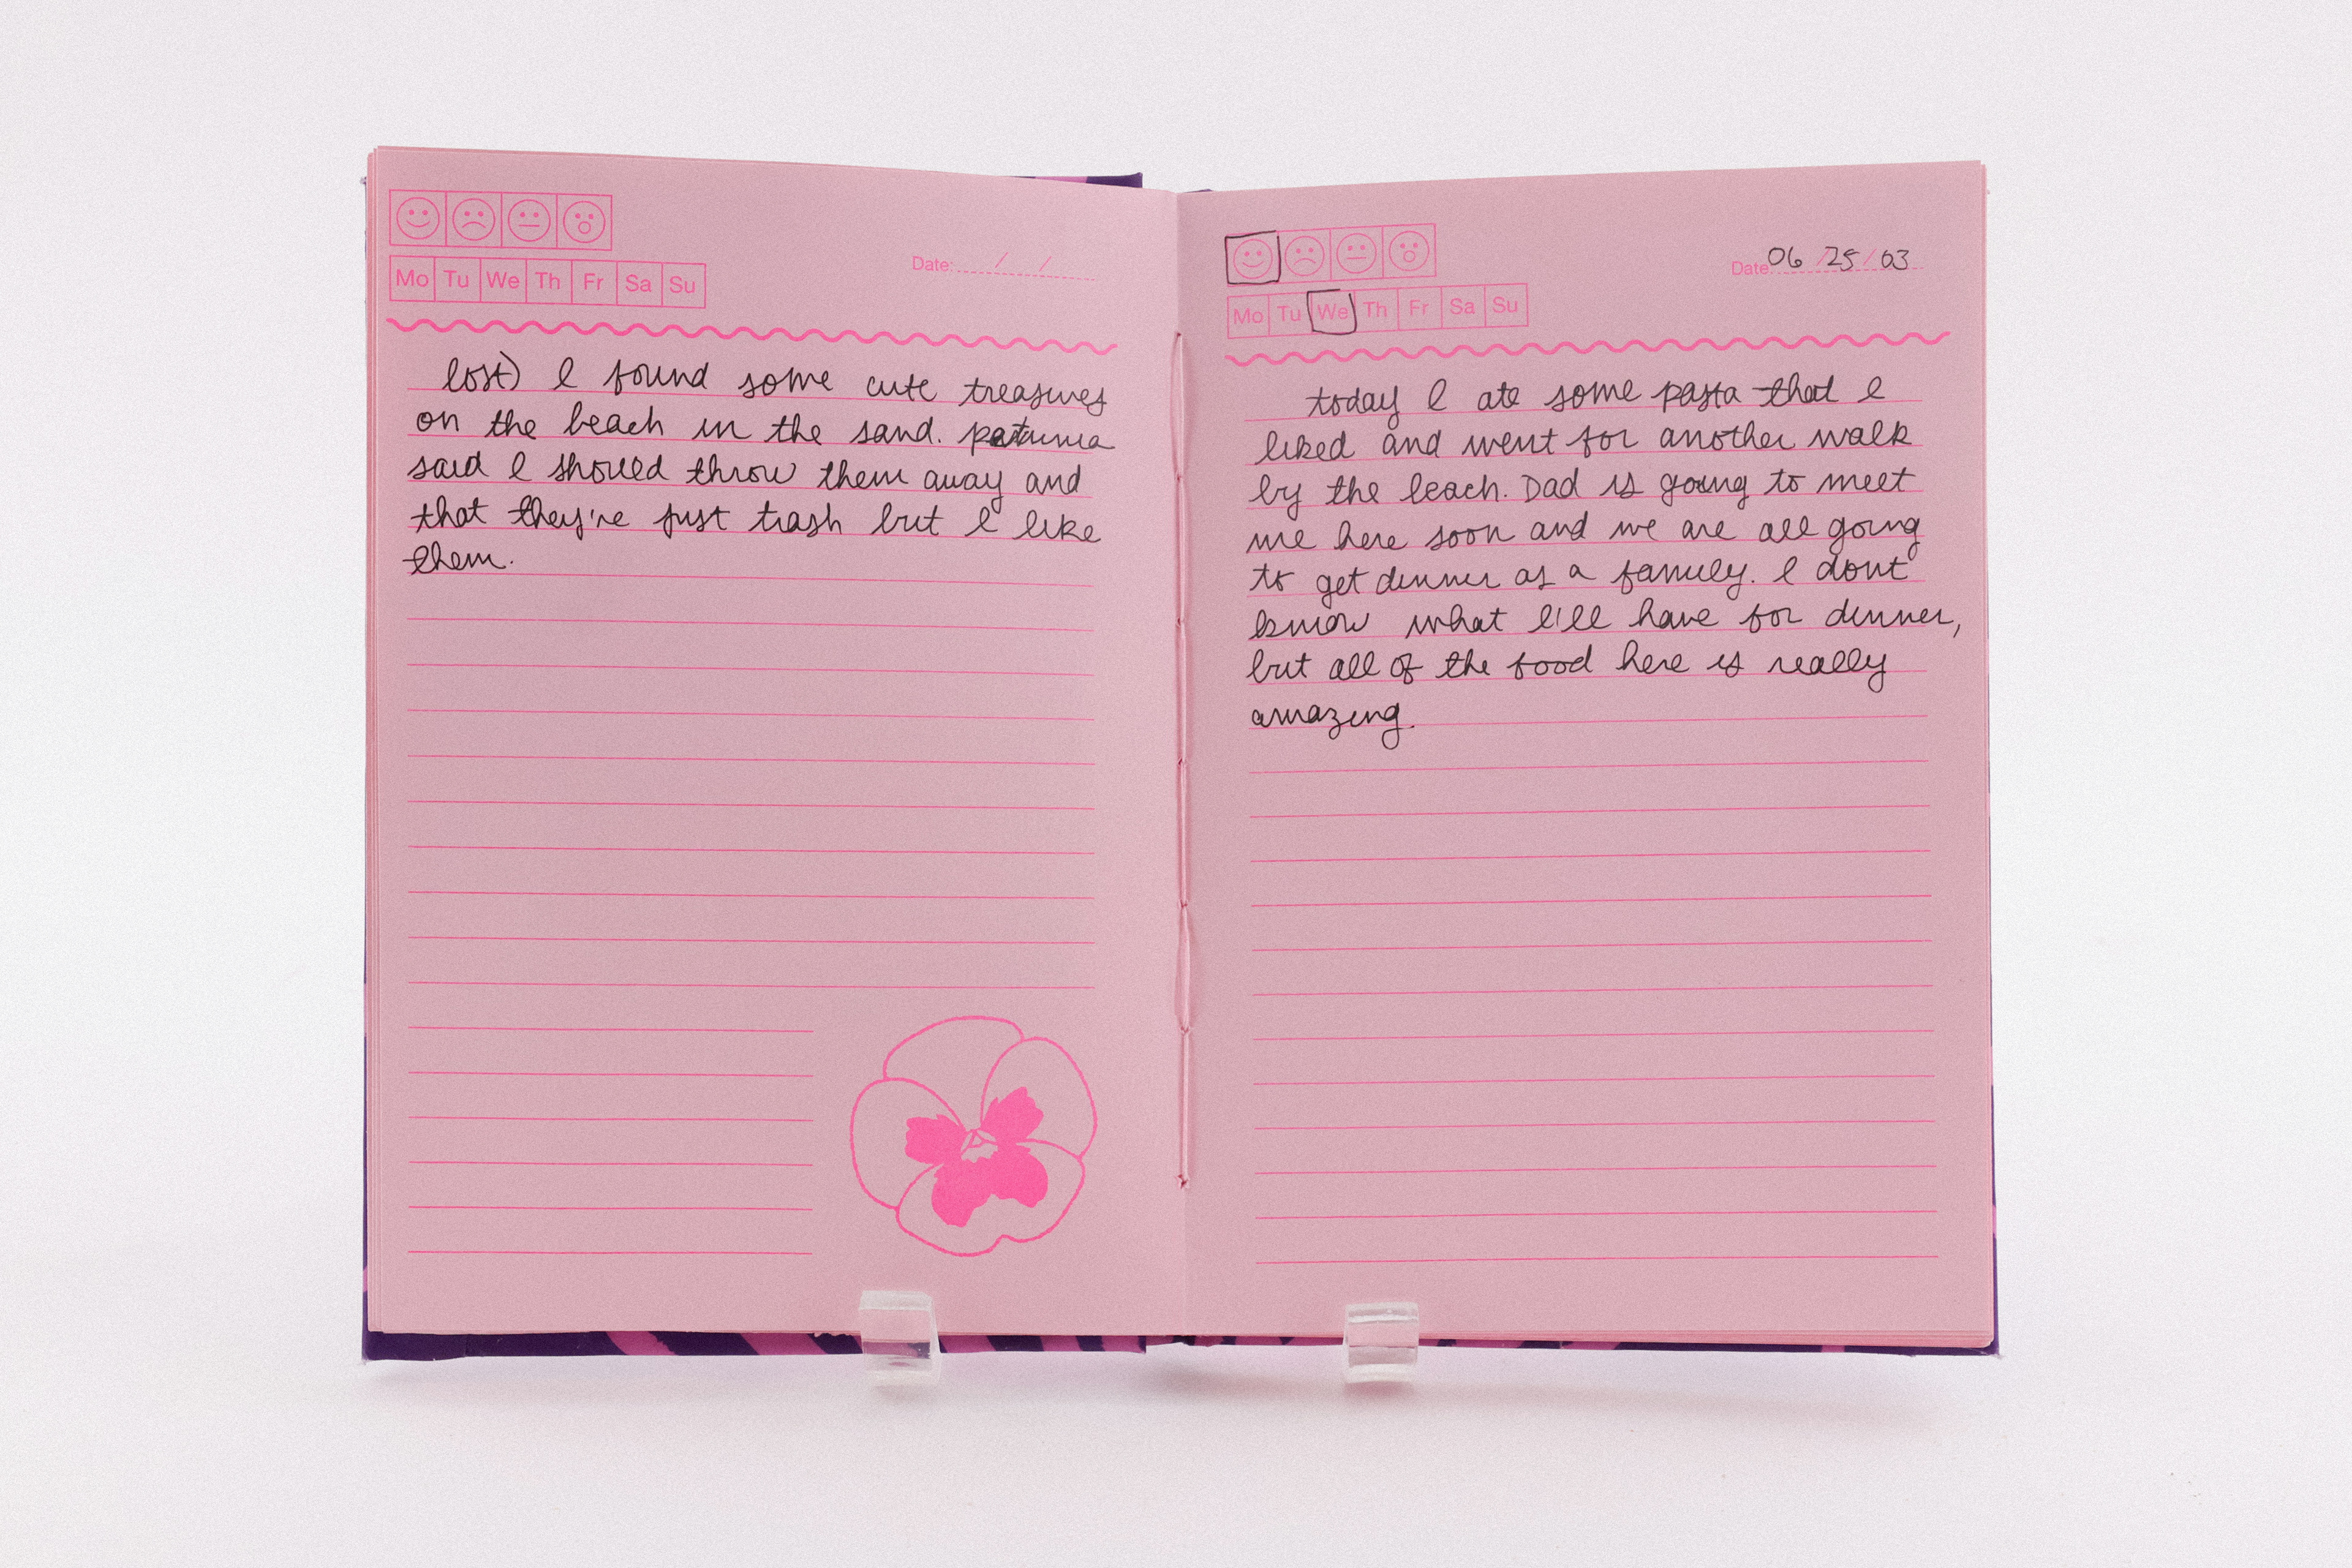 Mo Tu We Th Fr Sa Su
Date: / /
lost) I found some cute treasures
on the beach in the sand. petunia
said I should throw them away and
that they're just trash but I like
them.
Date: 06/25/03
Mo Tu We Th Fr Sa Su
today I ate some pasta that I
liked and went for another walk
by the beach. Dad is going to meet
me here soon and we are all going
to get dinner as a family. I dont
know what I'll have for dinner,
but all of the food here is really
amazing.